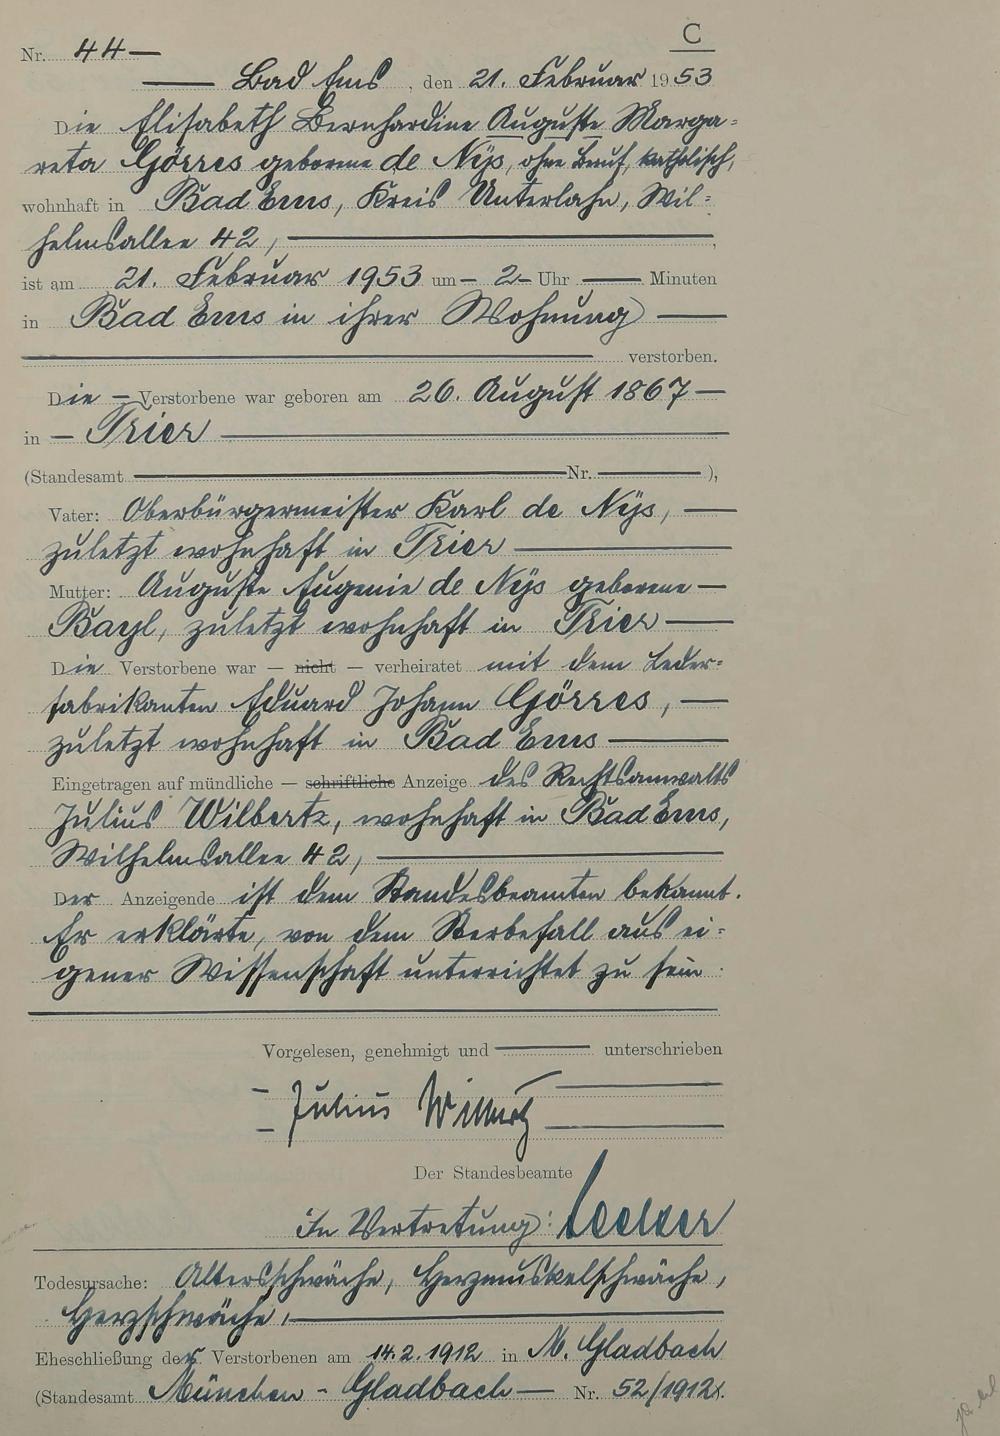 C
Nr. 44 —
— Bad Ems, den 21. Februar 1953
Die Elisabeth Bernhardine Auguste Marga=
reta Görres geborene de Nÿs, ohne Beruf, katholisch,
wohnhaft in Bad Ems, Kreis Unterlahn, Wil=
helmsallee 42, —,
ist am 21. Februar 1953 um — 2 — Uhr — Minuten
in Bad Ems in ihrer Wohnung —
— verstorben.
Die — Verstorbene war geboren am 26. August 1867 —
in — Trier —
(Standesamt — Nr. — ),
Vater: Oberbürgermeister Karl de Nÿs, —
zuletzt wohnhaft in Trier —
Mutter: Auguste Eugenie de Nÿs geborene —
Bayl, zuletzt wohnhaft in Trier —
Die Verstorbene war — nicht — verheiratet mit dem Leder=
fabrikanten Eduard Johann Görres, —
zuletzt wohnhaft in Bad Ems —
Eingetragen auf mündliche — schriftliche Anzeige des Rechtsanwalts
Julius Wilbertz, wohnhaft in Bad Ems,
Wilhelmsallee 42, —
Der Anzeigende ist dem Standesbeamten bekannt.
Er erklärte, von dem Sterbefall aus ei=
gener Wissenschaft unterrichtet zu sein.
Vorgelesen, genehmigt und — unterschrieben
Julius Wilbertz
Der Standesbeamte
In Vertretung:
Todesursache: Altersschwäche, Herzmuskelschwäche,
Herzschwäche, —
Eheschließung der Verstorbenen am 14.2.1912 in M. Gladbach
(Standesamt München - Gladbach — Nr. 52/1912).